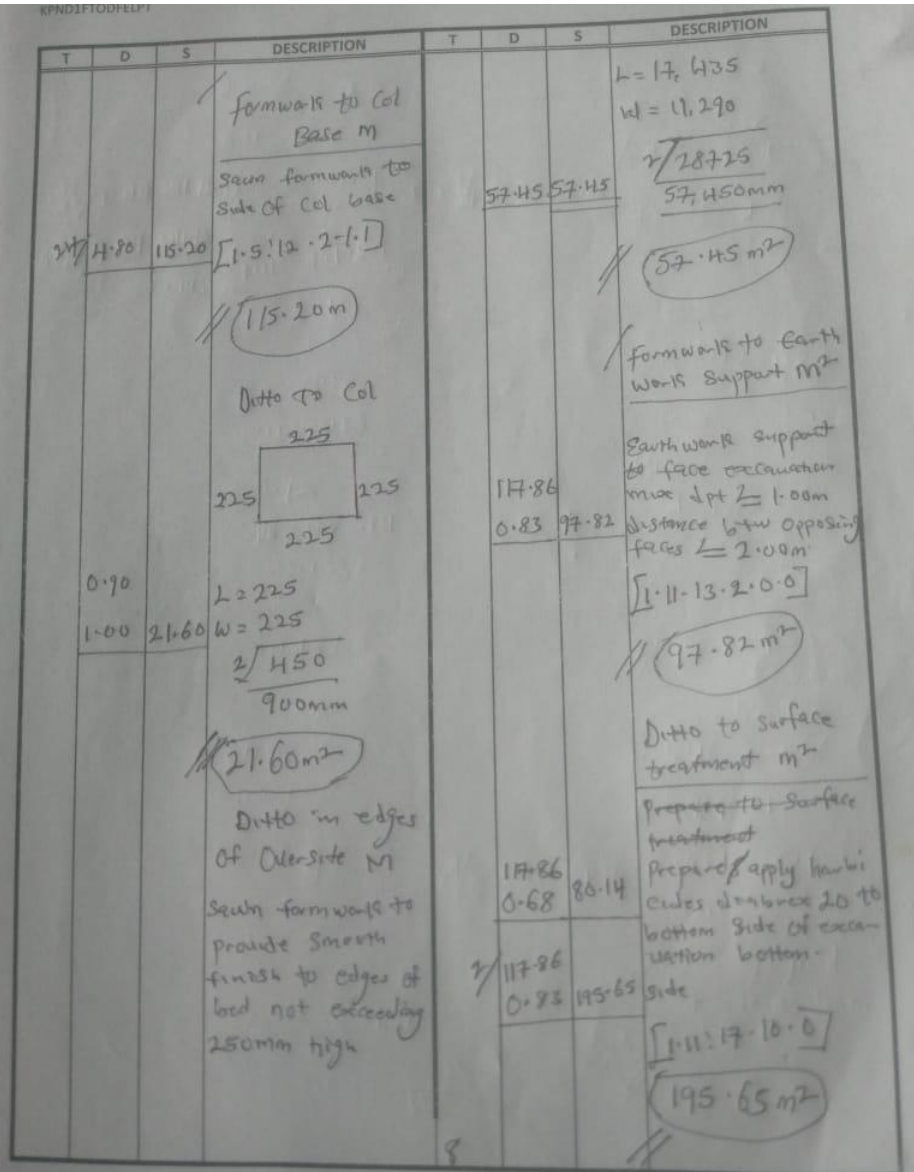 KPND1FTODFELPT
T D S DESCRIPTION
formwork to Col
Base M
Sawn formwork to
Side Of Col base
24/ 4.80 115.20 [1.5:12.2-1.1]
115.20m
Ditto To Col
225
225 225
225
0.90 L = 225
1.00 21.60 W = 225
2/450
900mm
21.60m²
Ditto in edges
Of Oversite M
Sawn formwork to
provide Smooth
finish to edges of
bed not exceeding
250mm high
T D S DESCRIPTION
L = 17,435
W = 11,290
2/28725
57.45 57.45 57,450mm
57.45 m²
formwork to Earth
work Support m²
Earthwork support
117.86 to face excavation
max dpt ≤ 1.00m
0.83 97.82 distance btw opposing
faces ≤ 2.00m
[1.11-13.2.0.0]
97.82 m²
Ditto to surface
treatment m²
Prepare to Surface
treatment
117.86 Prepare & apply
0.68 80.14 20 to
bottom Side of exca-
2/ 117.86 vation bottom-
0.83 195.65 side
[1.11:17.10.0]
195.65 m²
8